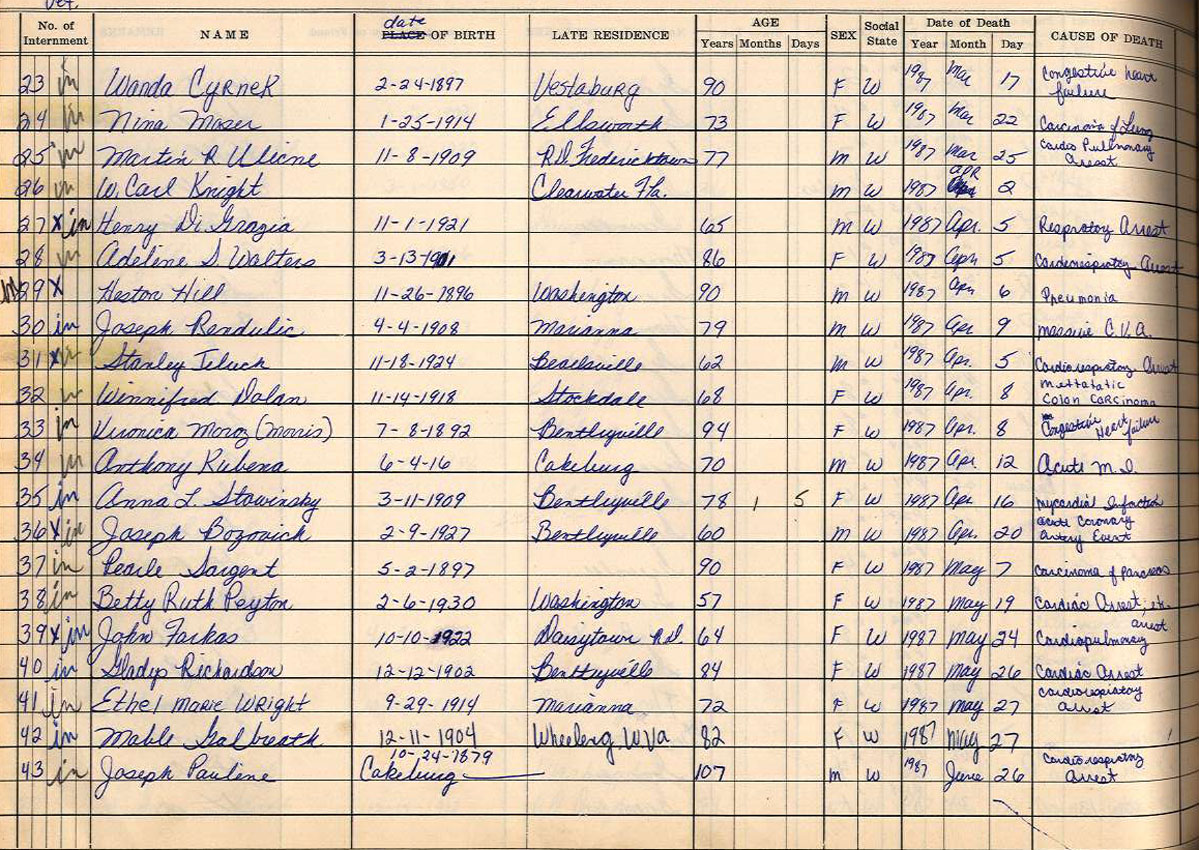 Vet.
No. of Internment NAME date PLACE OF BIRTH LATE RESIDENCE AGE Years Months Days SEX Social State Date of Death Year Month Day CAUSE OF DEATH
23 in Wanda Cyrnek 2-24-1897 Vestaburg 90 F W 1987 Mar 17 Congestive heart failure
24 in Nina Moser 1-25-1914 Ellsworth 73 F W 1987 Mar 22 Carcinoma of Lung
25 in Martin R Ulicne 11-8-1909 R.D. Fredericktown 77 M W 1987 Mar 25 Cardio Pulmonary Arrest
26 in W. Carl Knight Clearwater Fla. M W 1987 APR 2
27 X in Henry Di Grazia 11-1-1921 65 M W 1987 Apr. 5 Respiratory Arrest
28 in Adeline S Walters 3-13-1901 86 F W 1987 Apr 5 Cardiorespiratory Arrest
29 X Heston Hill 11-26-1896 Washington 90 M W 1987 Apr 6 Pneumonia
30 in Joseph Rendulic 4-4-1908 Marianna 79 M W 1987 Apr 9 Massive C.V.A.
31 X in Stanley Teluck 11-18-1924 Beallsville 62 M W 1987 Apr. 5 Cardiorespiratory Arrest
32 in Winnifred Dolan 11-14-1918 Stockdale 68 F W 1987 Apr. 8 Metatatic Colon Carcinoma
33 in Veronica Moroz (Morris) 7-8-1892 Bentleyville 94 F W 1987 Apr. 8 Congestive Heart failure
34 in Anthony Rubena 6-4-16 Cokeburg 70 M W 1987 Apr. 12 Acute M.I.
35 in Anna L. Stowinsky 3-11-1909 Bentleyville 78 1 5 F W 1987 Apr 16 Mycardial Infarction
36 X in Joseph Bozovich 2-9-1927 Bentleyville 60 M W 1987 Apr. 20 Acute Coronary Artery Event
37 in Pearle Sargent 5-2-1897 90 F W 1987 May 7 Carcinoma of Pancreas
38 in Betty Ruth Peyton 2-6-1930 Washington 57 F W 1987 May 19 Cardiac Arrest; etc.
39 X in John Farkas 10-10-1922 Daisytown R.D. 64 F W 1987 May 24 Cardiopulmonary arrest
40 in Gladys Richardson 12-12-1902 Bentleyville 84 F W 1987 May 26 Cardiac Arrest
41 in Ethel Marie Wright 9-29-1914 Marianna 72 F W 1987 May 27 Cardiorespiratory Arrest
42 in Mable Galbreath 12-11-1904 Wheeling, W Va 82 F W 1987 May 27
43 in Joseph Pauline 10-24-1879 Cokeburg 107 M W 1987 June 26 Cardiorespiratory Arrest